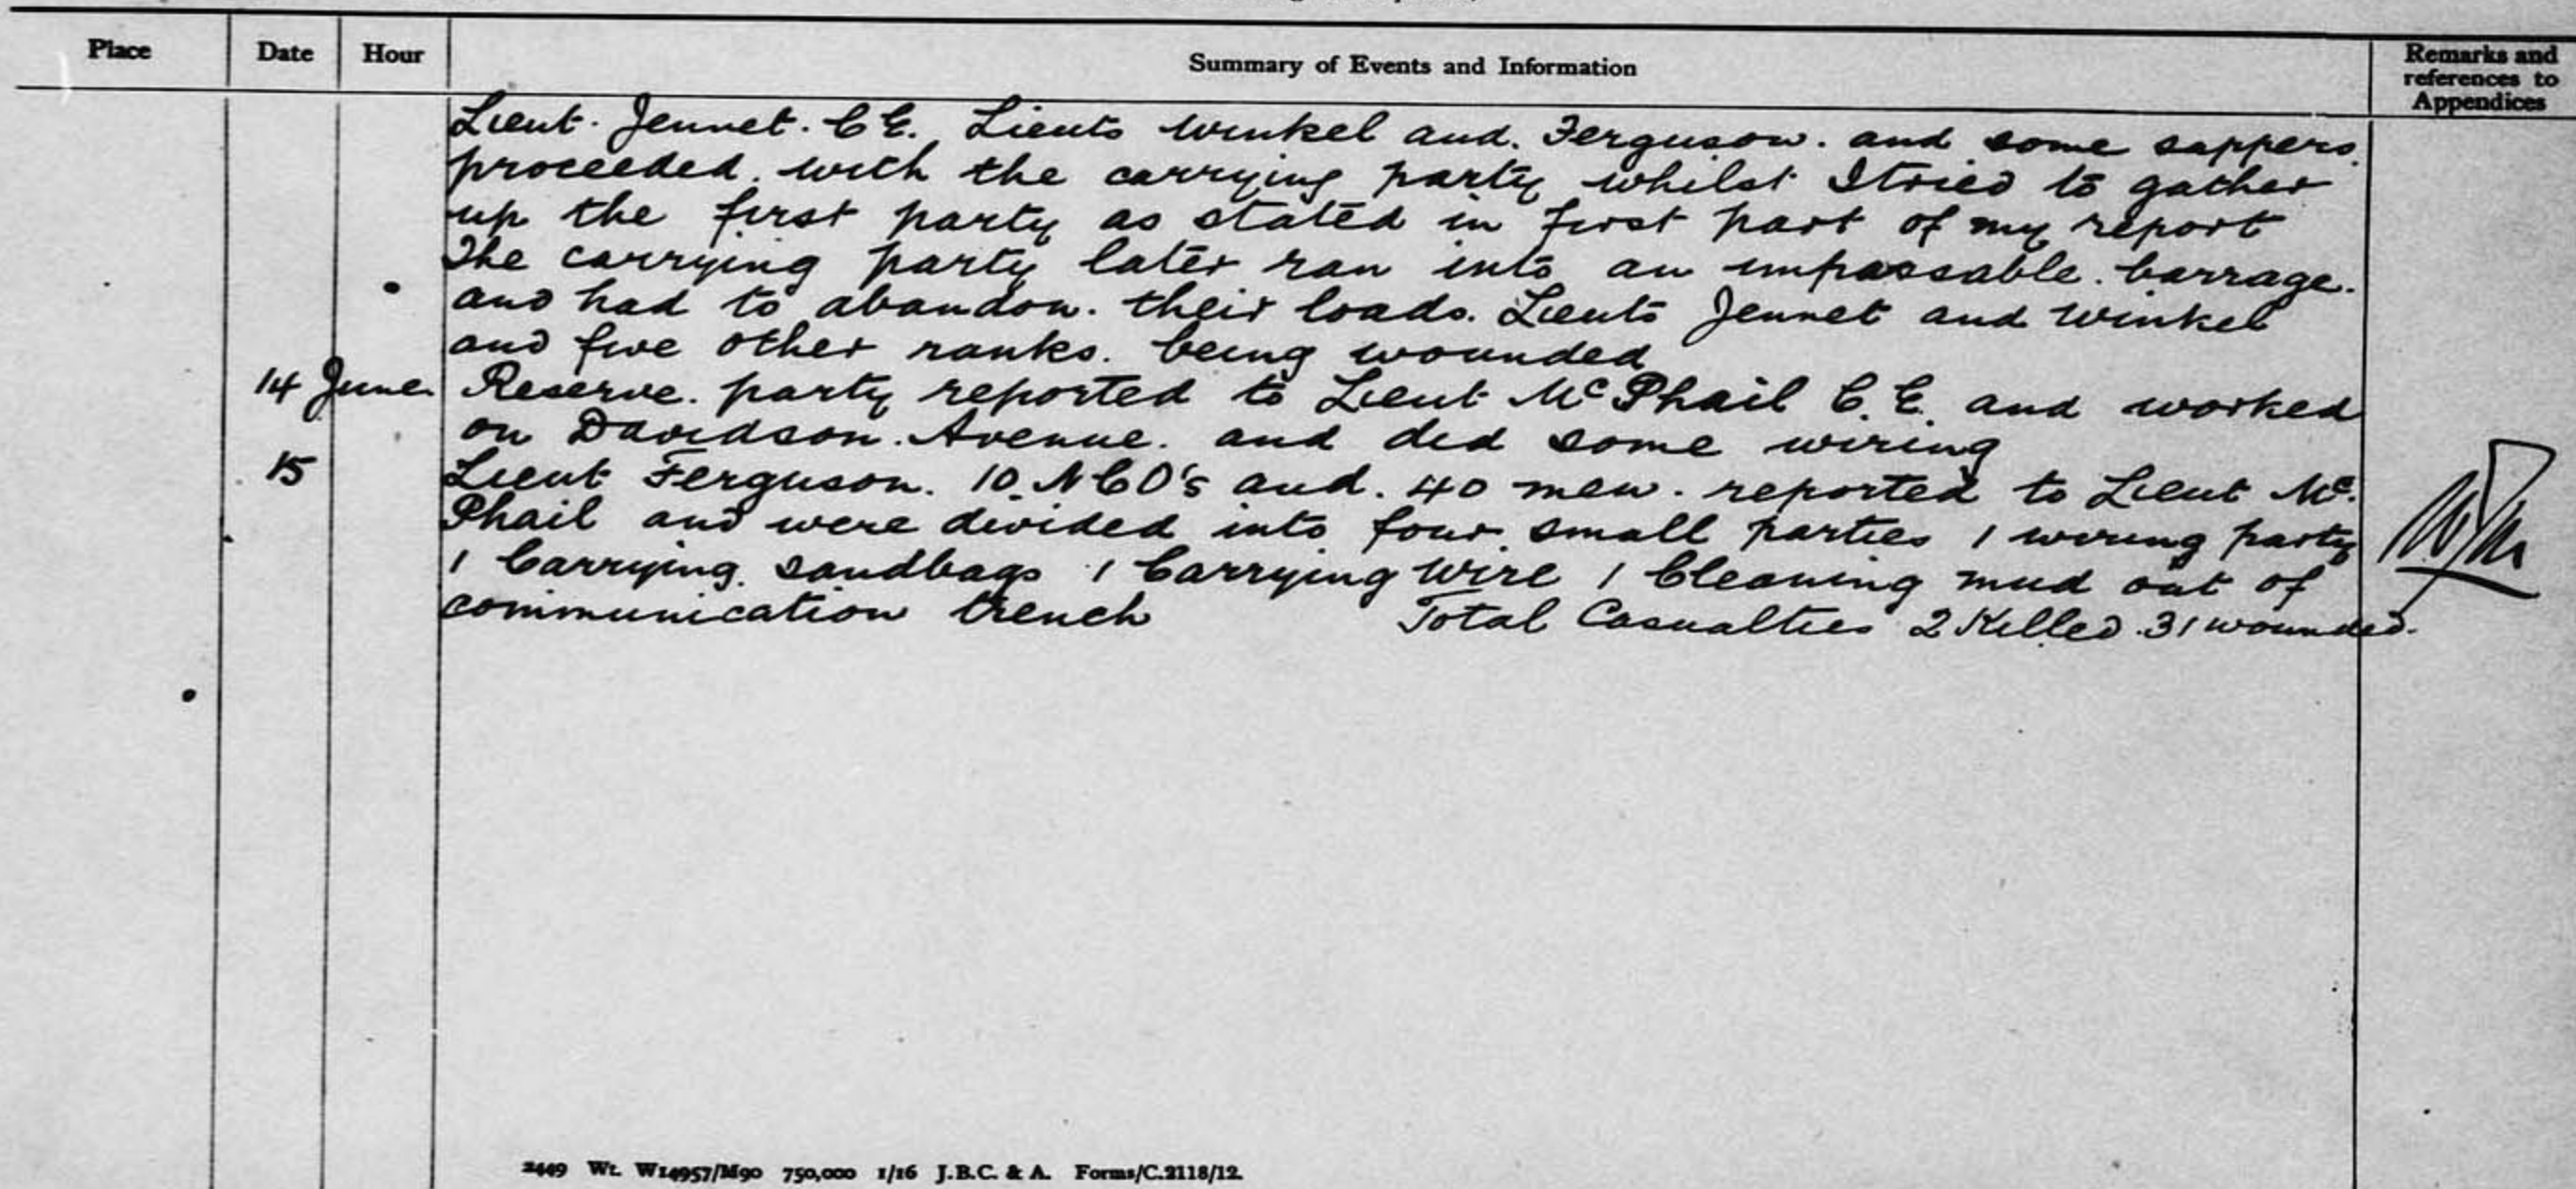 Place Date Hour Summary of Events and Information Remarks and references to Appendices
Lieut. Jennet. C.E. Lieuts Winkel and. Ferguson. and some sappers.
proceeded. with the carrying party whilst I tried to gather
up the first party as stated in first part of my report
The carrying party later ran into an impassable. barrage.
and had to abandon. their loads. Lieuts Jennet and Winkel
and five other ranks. being wounded
14 June Reserve. party reported to Lieut McPhail C.E. and worked
on Davidson. Avenue. and did some wiring
15 Lieut Ferguson. 10 NCO's and. 40 men. reported to Lieut Mc.
Phail and were divided into four small parties 1 wiring party
1 Carrying. sandbags 1 Carrying Wire 1 Cleaning mud out of
communication trench Total Casualties 2 Killed. 31 wounded.
2449 Wt. W14957/M90 750,000 1/16 J.B.C. & A. Forms/C.2118/12.